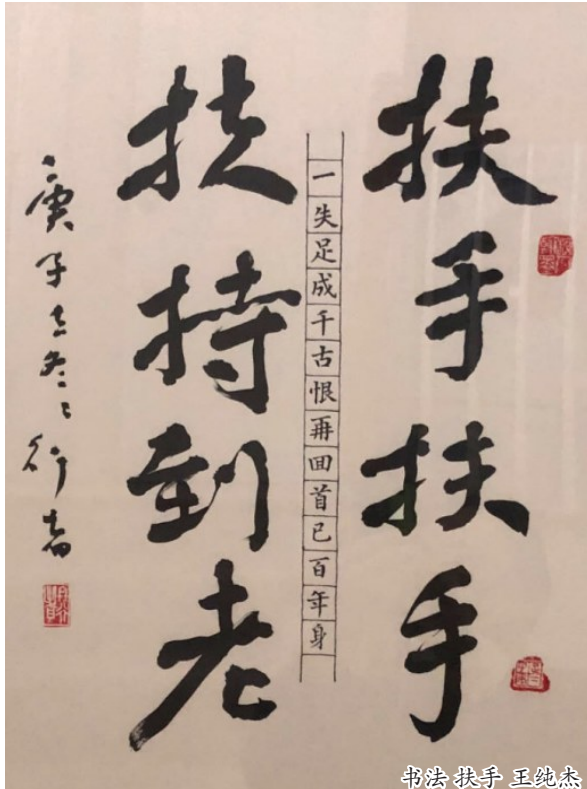 扶手扶手
一失足成千古恨再回首已百年身
扶持到老
庚子立冬
书法 扶手 王纯杰